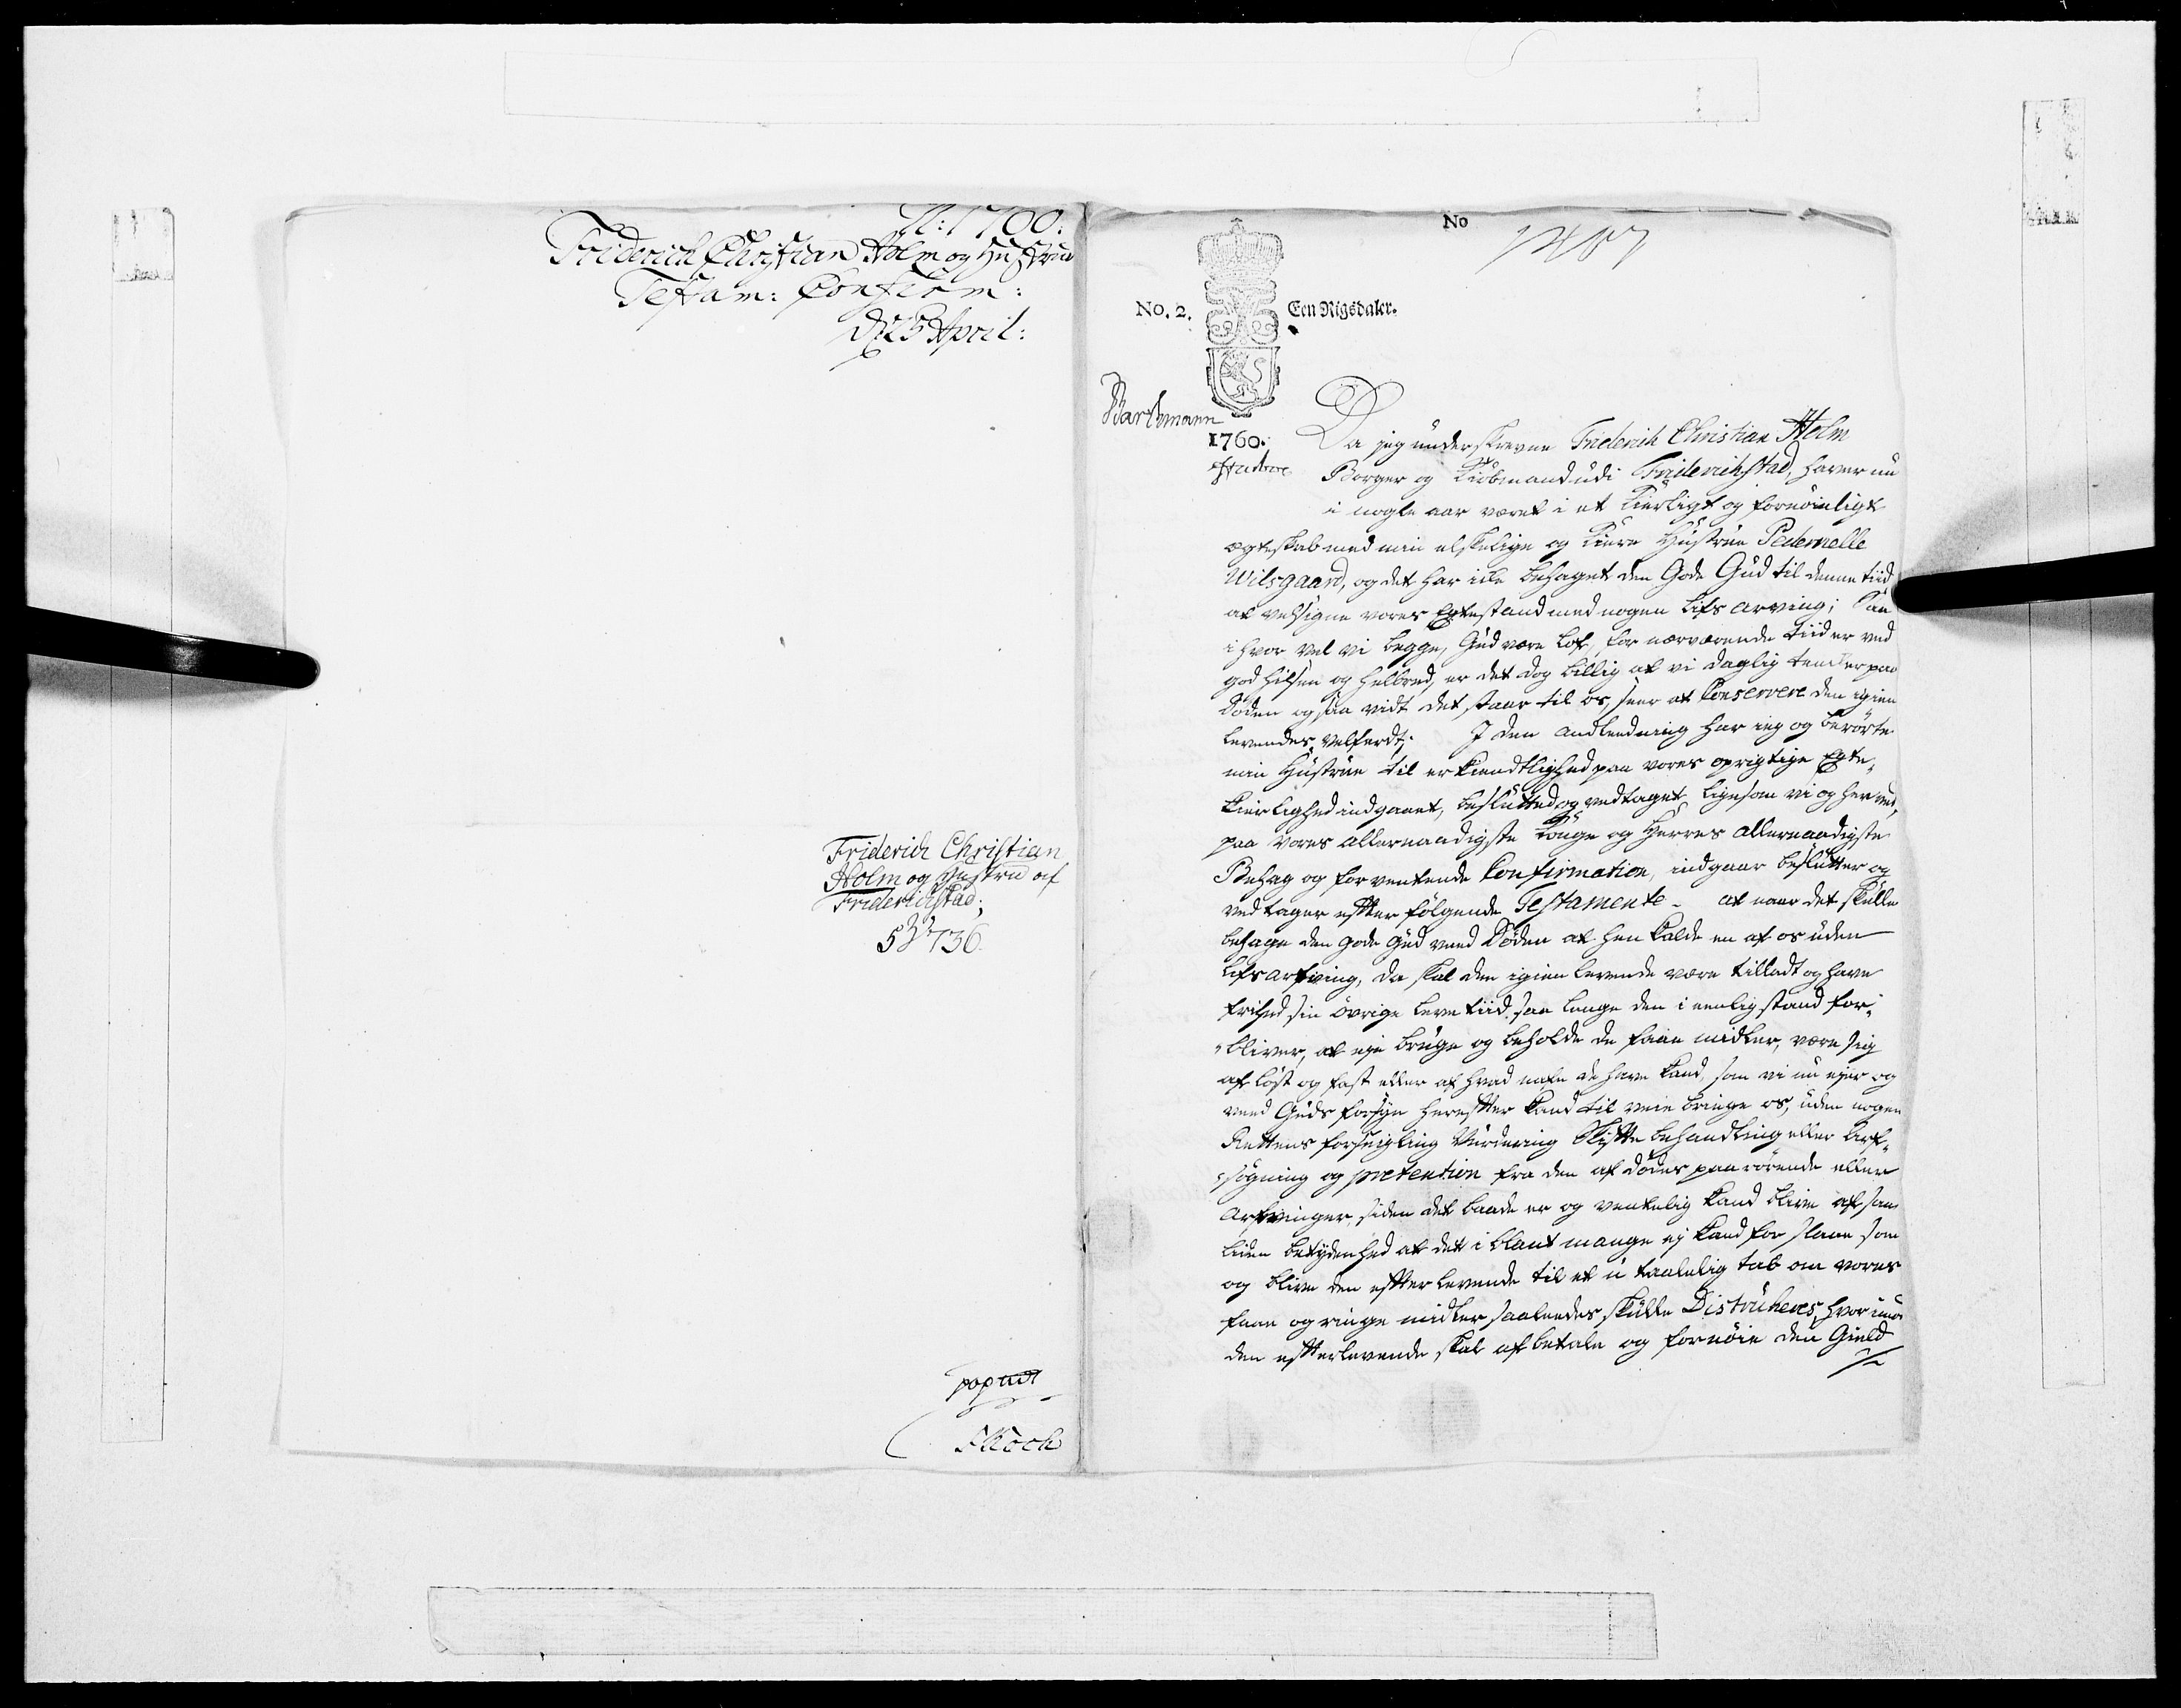 A: 1760:
Friderich Christian Holm og Hustrue
Testam: Confirm:
d 25 April:
Friderich Christian
Holm og Hustrue af
Friderichstad;
736.
Koch
No
No. 2.
Een Rigsdaler.
1760.
Da jeg underskrevne Friderich Christian Holm
Borger og Kiøbmand udi Friderichstad, haver nu
i nogle aar været i et kierligt og fornøieligt
ægteskab med min elskelige og kiere Hustrue Pedernelle
Wilsgaard, og det har icke behaget den Gode Gud til denne tiid
at velsigne vores Egtestand med nogen Lifs arving; Saa
i hvor vel vi begge, Gud være lof, for nærværende tiid er ved
god hilsen og helbred, er det dog billig at vi daglig tencker paa
Døden og saa vidt det staar til os, seer at Conservere den igien
levendes velferdt; I den andleedning har jeg og berørte
min Hustrue til erkiendtlighed paa vores oprigtige Egte-
kierlighed indgaaet, beslutted og vedtaget, ligesom vi og herved,
paa vores allernaadigste Konge og Herres allernaadigste
Behag og forventende Confirmation, indgaar beslutter og
vedtager effter følgende Testamente - at naar det skulle
behage den gode Gud med Døden at hen kalde en af os uden
Lifsarfving, da skal den igien levende være tilladt og have
frihed sin øvrige leve tiid, saa lenge den i eenlig stand for-
bliver, at eje bruge og beholde de faae midler, være sig
af løst og fast eller af hvad nafn de have kand, som vi nu ejer og
med Guds forsyn hereffter kand til veie bringe os, uden nogen
Rettens forseigling Vurdering Skiffte behandling eller Arf-
søgning og pretention fra den af dødes paarørende eller
Arfvinger, siden det baade er og ventelig kand blive af saa
liden betydenhed at det i blant mange ej kand for slaae som
og blive den effter levende til et u taalelig tab om vores
faae og ringe midler saaleedes skulle Distruheres, hvor imod
den effterlevende skal af betale og fornøie den Gield